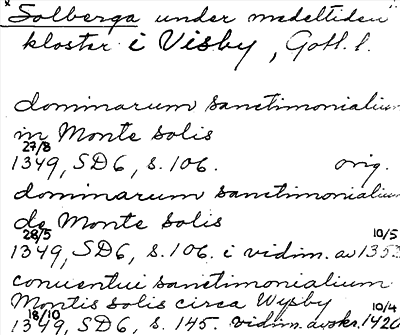 "Solberga under medeltiden"
kloster i Visby, Gotl. l.
dominarum sanctimonialium
in Monte solis
27/8
1349, SD6, s. 106. orig.
dominarum sanctimonialium
de Monte solis
28/5 10/5
1349, SD6, s. 106. i vidim. av 1353
conventui sanctimonialium
Montis solis circa Wysby
18/10 10/4
1349, SD 6, s. 145. vidim. avskr. 1420